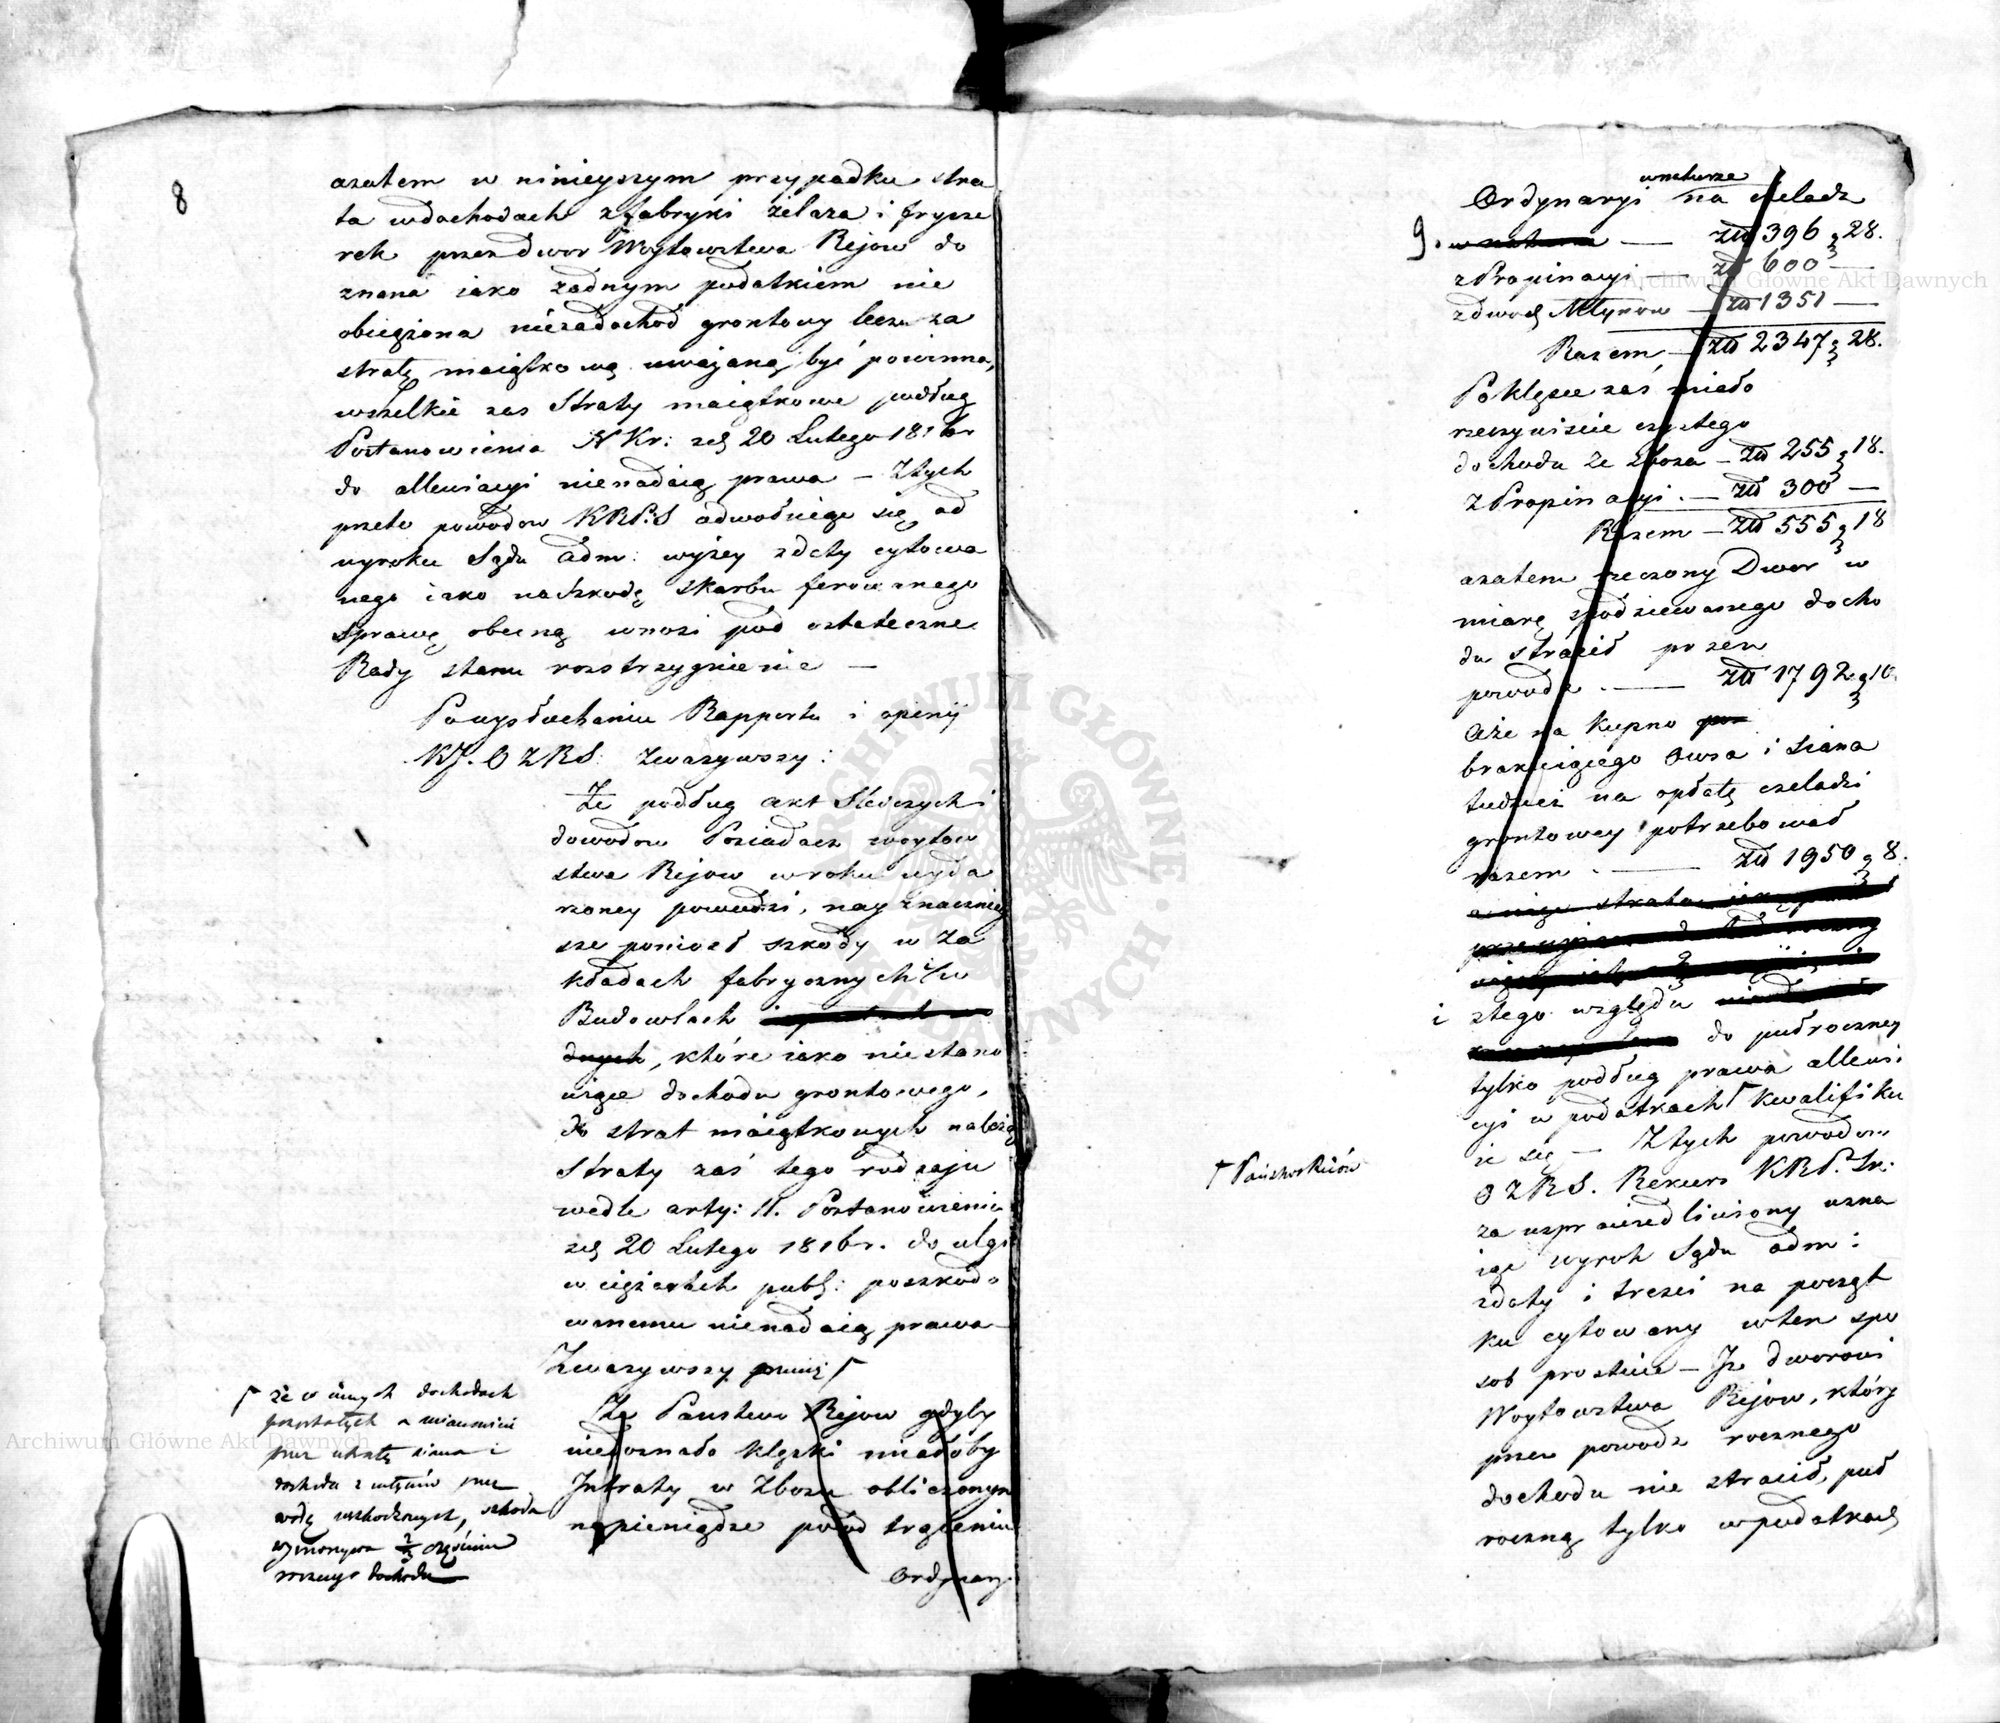 8
azatem w ninieyszym przypadku stra
ta w dochodach z fabryki żelaza i frysze
rek przez dwor Woytowstwa Rejow do
znana iako żadnym podatkiem nie
obciążona nieza dochod grontowy lecz za
stratę maiątkową uważaną być powinna,
wszelkie zas Straty maiątkowe podług
Postanowienia N Kr: zd 20 Lutego 1816r
do allewiacyi nienadaią prawa — Ztych
przeto powodow KRP:S odwołuiąc się od
wyroku Sądu adm: wyżey z daty cytowa
nego iako na szkodę skarbu ferowanego
Sprawę obecną wnosi pod ostateczne
Rady stanu rozstrzygnienie —
Po wysłuchaniu Rapportu i opinij
KJ. O Z R S. Zwazywszy:
Ze podług akt Sledczych i
dowodow Posiadacz woytow
stwa Rejow w roku wyda
rzoney powodzi, nay znacznie
sze poniosł szkody w za
kładach fabrycznych i w
Budowlach
dnych, które iako nie stano
wiące dochodu grontowego,
do strat maiątkowych należą
Straty zaś tego rodzaju
wedle arty: 11. Postanowienia
zd 20 Lutego 1816r. do ulgi
w ciężarach publ: poszkodo
wanemu nienadaią prawa —
Zwazywszy
że w innych dochodach
a mianowicie
przez utratę siana i
dochodu z młynów przez
wodę uszkodzonych, szkoda
wynosząca
rocznego dochodu
Ze Panstwo Rejow gdyby
niedoznało klęski miałoby
Intraty w Zbozu obliczonym
na pieniądze po od trąceniu
Ordynaryi
w naturze
Ordynaryi na czeladz
9. w naturze — zł 396 g 28.
z Propinacyi — zł 600 —
z dwoch Młynow — zł 1351 —
Razem — zł 2347 g 28.
Po klęsce zaś miało
rzeczywiscie czystego
dochodu ze Zboza — zł 255 g 18.
z Propinacyi. — zł 300 —
Razem — zł 555 g 18
azatem rzeczony Dwor w
miarę spodziewanego docho
du stracił przez
powodz. — zł 1792 g 10.
aże na kupno
brakuiącego owsa i siana
tudziez na opłatę czeladzi
grontowey potrzebował
razem. — zł 1950 g 8.
i ztego względu
do pułroczney
tylko podług prawa allewi
cyi w podatkach kwalifiku
ie się — Ztych powodow
Pańskich
O Z R S. Rekurs KRP. Sk:
za usprawiedliwiony uzna
iąc wyrok Sądu adm:
zdaty i tresci na począt
ku cytowany w ten spo
sob prostuie — Iz dworowi
Woytowstwa Rejow, który
przez powodz rocznego
dochodu nie stracił, puł
roczną tylko w podatkach